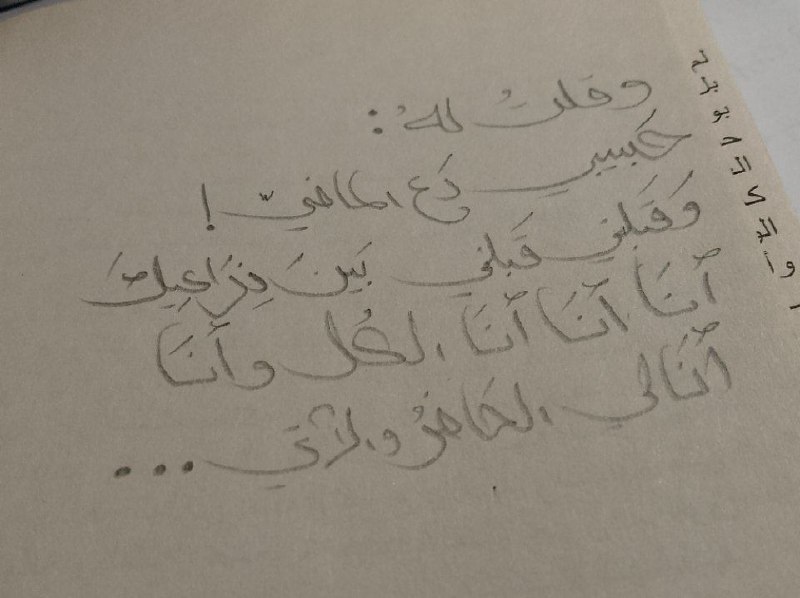 وقلتُ لهُ:
حَبيبي دَع الماضيّ!
وَقَبلني قَبلني بَينَ ذِرَاعيكَ
أنَا أنَا أنَا الكُل وأنَا
أنَا لي الحَاضرُ والآتي...